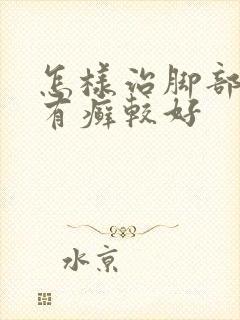 怎样治脚部
有癣较好
水京